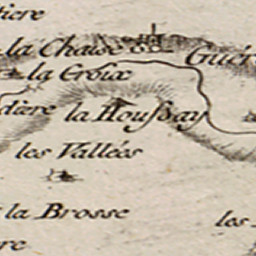 tiere
la Chaise
Guér
la Croix
dière
la Houssay
les Vallées
la Brosse
les
re